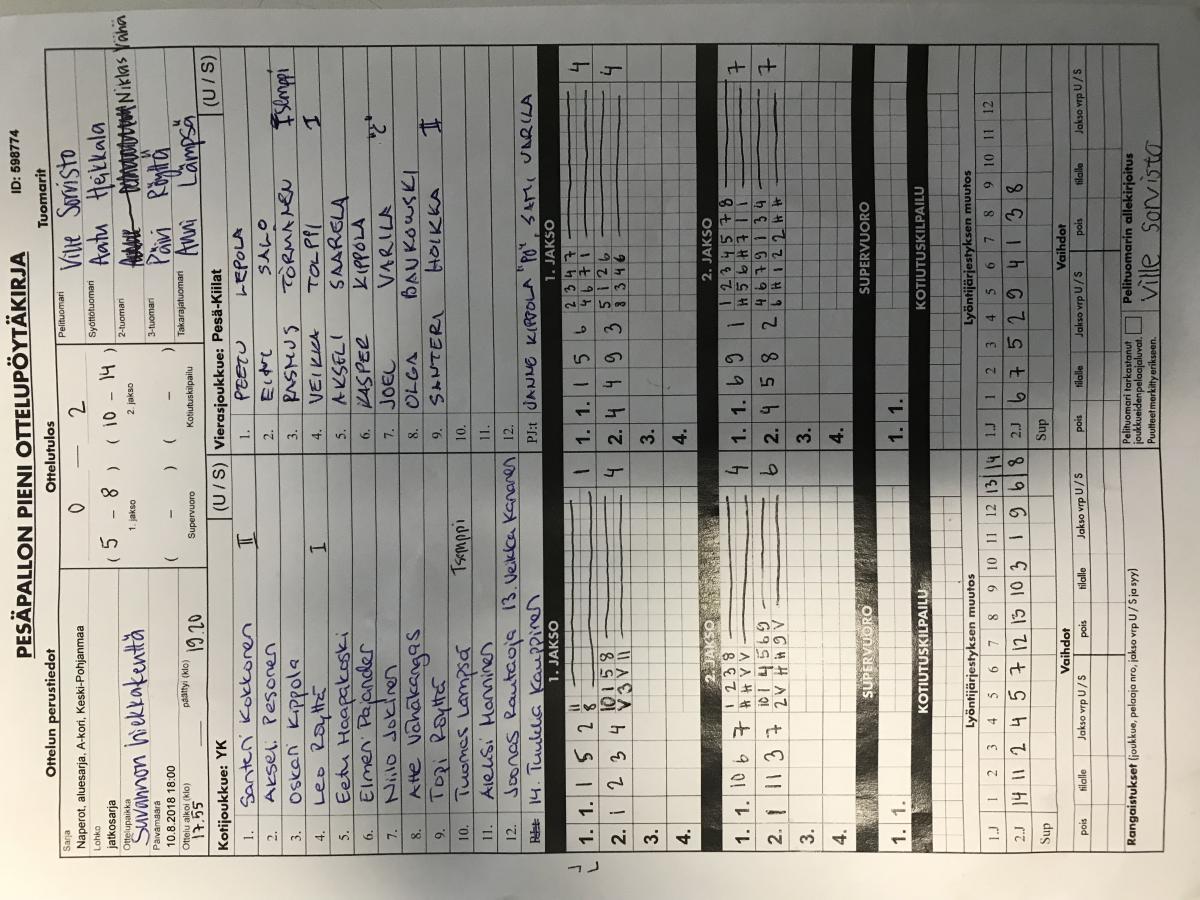 PESÄPALLON PIENI OTTELUPÖYTÄKIRJA
ID: 598774
Ottelun perustiedot
Sarja
Naperot, aluesarja, A-kori, Keski-Pohjanmaa
Lohko
jatkosarja
Ottelupaikka
Suvannon hiekkakenttä
Päivämäärä
10.8.2018 18:00
Ottelu alkoi (klo)
17.55
päättyi (klo)
19.20
Ottelutulos
0 — 2
( 5 - 8 ) ( 10 - 14 )
1. jakso 2. jakso
( - ) ( - )
Supervuoro Kotiutuskilpailu
Tuomarit
Pelituomari Ville Sorvisto
Syöttötuomari Aatu Heikkala
2-tuomari Niklas Vähä
3-tuomari Päivi Pöyttä
Takarajatuomari Anni Lämpsä
Kotijoukkue: YK (U / S)
1. Santeri Kokkonen II
2. Akseli Pesonen
3. Oskari Kippola
4. Leo Röyttä I
5. Eetu Haapakoski
6. Elmeri Pajander
7. Niilo Jokinen
8. Atte Vähäkangas
9. Topi Röyttä
10. Tuomas Lämpsä Tsemppi
11. Aleksi Manninen
12. Joonas Rautaoja 13. Veikka Kananen
14. Tuukka Kauppinen
Vierasjoukkue: Pesä-Kiilat (U / S)
1. PEETU LEPOLA
2. EINI SALO
3. RASMUS TÖRMÄNEN Tsemppi
4. VEIKKA TOLPPI I
5. AKSELI SAARELA
6. KASPER KIPPOLA "2"
7. JOEL VARILA
8. OLGA BANKOWSKI
9. SANTERI HOIKKA II
10.
11.
12.
PJ:t JANNE KIPPOLA "PJ", SAMI VARILA
1. JAKSO
1. 1. 1 5 2 11 8 1
2. 1 2 3 4 10 1 5 8 V 3 V 11 4
3.
4.
1. JAKSO
1. 1. 1 5 6 2 3 4 7 4 6 7 1 4
2. 4 4 9 3 5 1 2 6 8 3 4 6 4
3.
4.
2. JAKSO
1. 1. 10 6 7 1 2 3 8 H H V V 4
2. 1 11 3 7 10 1 4 5 6 9 2 V H H 9 V 6
3.
4.
2. JAKSO
1. 1. 6 9 1 1 2 3 4 5 7 8 H 5 6 H 7 1 1 7
2. 4 5 8 2 4 6 7 9 1 3 4 6 H 1 2 2 H H 7
3.
4.
SUPERVUORO
1. 1.
SUPERVUORO
1. 1.
KOTIUTUSKILPAILU
KOTIUTUSKILPAILU
Lyöntijärjestyksen muutos
1.J 1 2 3 4 5 6 7 8 9 10 11 12 13 14
2.J 14 11 2 4 5 7 12 13 10 3 1 9 6 8
Sup
Lyöntijärjestyksen muutos
1.J 1 2 3 4 5 6 7 8 9 10 11 12
2.J 6 7 5 2 9 4 1 3 8
Sup
Vaihdot
pois tilalle Jakso vrp U / S pois tilalle Jakso vrp U / S
Vaihdot
pois tilalle Jakso vrp U / S pois tilalle Jakso vrp U / S
Rangaistukset (joukkue, pelaaja nro, jakso vrp U / S ja syy)
Pelituomari tarkastanut
joukkueidenpelaajaluvat.
Puutteet merkitty erikseen.
Pelituomarin allekirjoitus
Ville Sorvisto